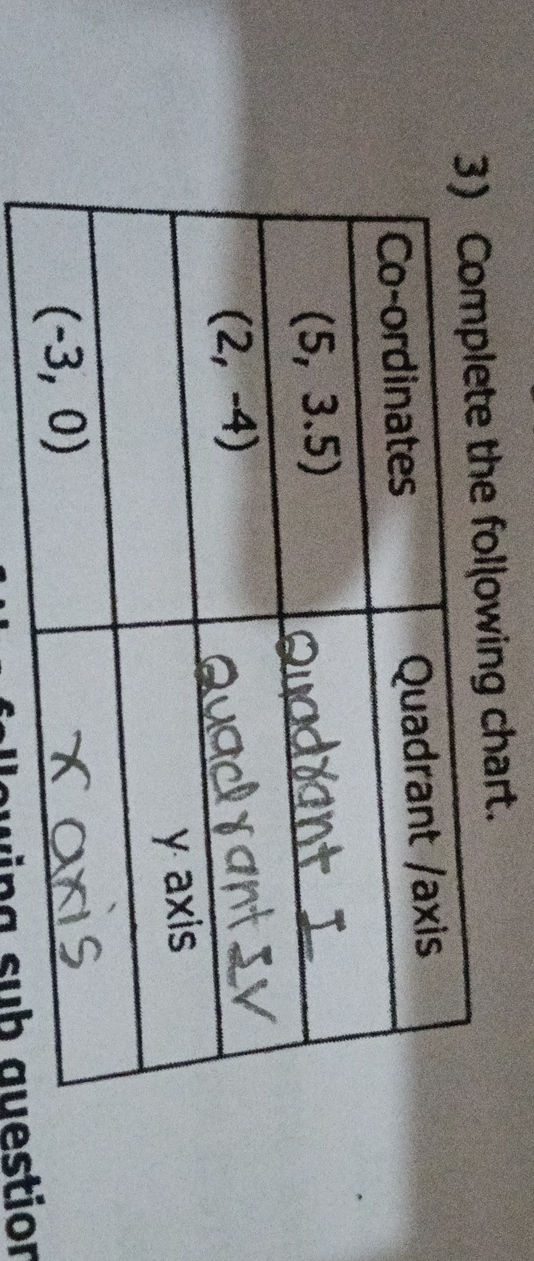 3) Complete the following chart.
Co-ordinates Quadrant /axis
(5, 3.5) Quadrant I
(2, -4) Quadrant IV
y axis
(-3, 0) x axis
following sub question